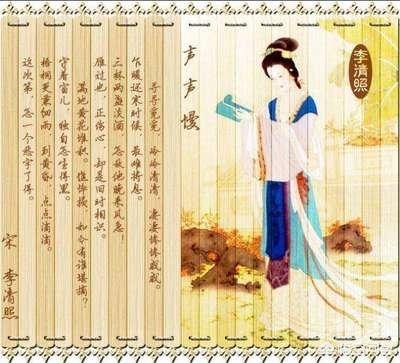 李清照
声声慢
寻寻觅觅，冷冷清清，凄凄惨惨戚戚。
乍暖还寒时候，最难将息。
三杯两盏淡酒，怎敌他晚来风急！
雁过也，正伤心，却是旧时相识。
满地黄花堆积。憔悴损，如今有谁堪摘？
守着窗儿，独自怎生得黑。
梧桐更兼细雨，到黄昏，点点滴滴。
这次第，怎一个愁字了得。
宋 李清照